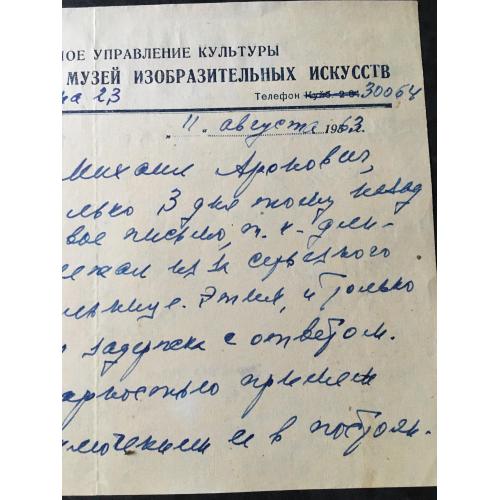 НОЕ УПРАВЛЕНИЕ КУЛЬТУРЫ
МУЗЕЙ ИЗОБРАЗИТЕЛЬНЫХ ИСКУССТВ
на 23 Телефон Куйб. 2-9 30064
„11„ августа 1963 г.
Михаил Аронович,
лько 3 дня тому назад
вое письмо, т. к. дли-
лежал из за сердечного
льнице. Этим, и только
задержка с ответом.
арностью примем
ключении и в постоян-